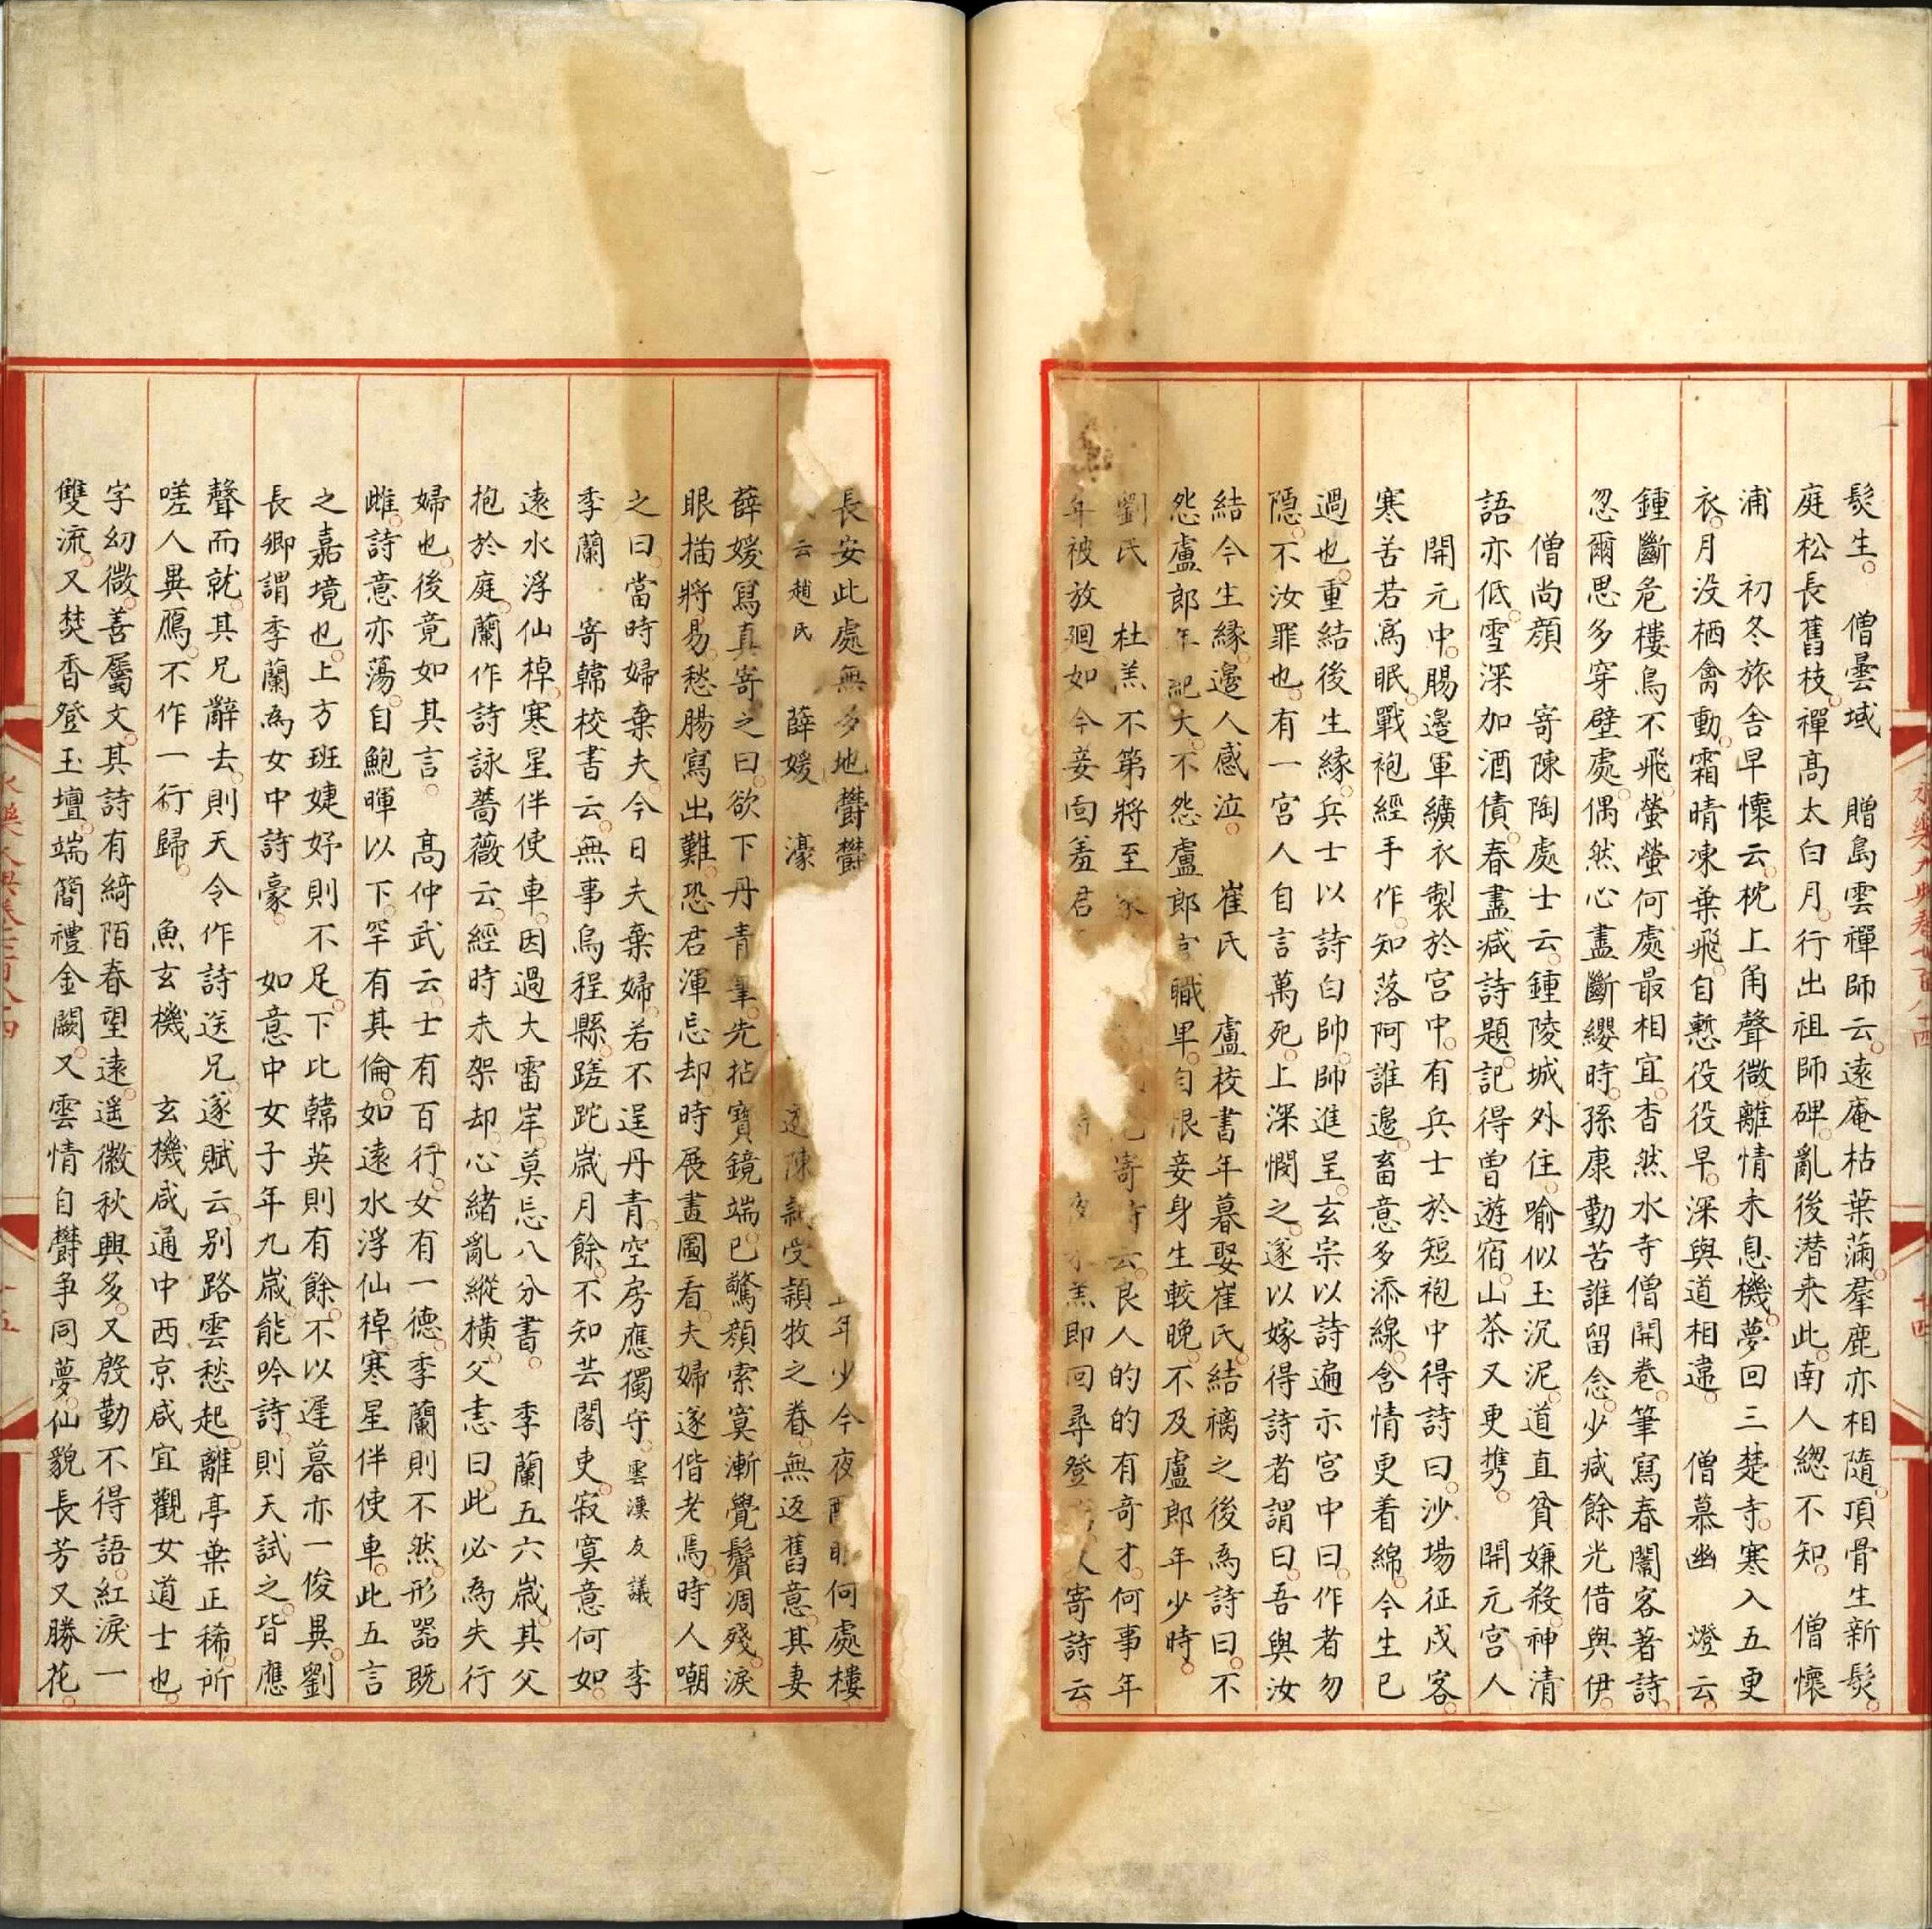 髮生。 僧曇域 贈島雲禪師云。遠庵枯葉滿。羣鹿亦相隨。頂骨生新髮。
庭松長舊枝。禪高太白月。行出祖師碑。亂後潜来此。南人緫不知。 僧懷
浦 初冬旅舎早懷云。枕上角聲微。離情未息機。夢回三楚寺。寒入五更
衣。月没栖禽動。霜晴凍葉飛。自慙役役早。深與道相違。 僧慕幽 燈云。
鍾斷危樓鳥不飛。螢螢何處最相宜。杳然水寺僧開巻。筆寫春闈客著詩。
忽爾思多穿壁處。偶然心盡斷纓時。孫康勤苦誰留念。少减餘光借與伊。
僧尚顔 寄陳陶處士云。鍾陵城外住。喻似玉沉泥。道直貧嫌殺。神清
語亦低。雪深加酒債。春盡减詩題。記得曽遊宿。山茶又更携。 開元宮人
開元中。賜邉軍纊衣製於宮中。有兵士於短袍中得詩曰。沙場征戍客。
寒苦若爲眠。戰袍經手作。知落阿誰邉。畜意多添線。含情更着綿。今生已
過也。重結後生緣。兵士以詩白帥。帥進呈。玄宗以詩遍示宮中曰。作者勿
隱。不汝罪也。有一宮人自言萬死。上深憫之。遂以嫁得詩者。謂曰。吾與汝
結今生緣。邉人感泣。 崔氏 盧校書年暮娶崔氏。結褵之後爲詩曰。不
怨盧郎年紀大。不怨盧郎官職卑。自恨妾身生較晚。不及盧郎年少時。
劉氏 杜羔不第將至家 寄詩云。良人的的有奇才。何事年
年被放廻。如今妾面羞君 羔即回尋登 人寄詩云。
長安此處無多地。鬱鬱 年少今夜醉眠何處樓
云趙氏 薛媛 濠 陳 受頴牧之眷。無返舊意。其妻
薛媛寫真寄之曰。欲下丹青筆。先拈寶鏡端。已驚顔索寞。漸覺鬢凋殘。淚
眼描將易。愁腸寫出難。恐君渾忘却。時展畫圖看。夫婦遂偕老焉。時人嘲
之曰。當時婦棄夫。今日夫棄婦。若不逞丹青。空房應獨守。雲溪友議 李
季蘭 寄韓校書云。無事烏程縣。蹉跎歲月餘。不知芸閣吏。寂寞意何如。
遠水浮仙棹。寒星伴使車。因過大雷岸。莫忘八分書。 季蘭五六歲。其父
抱於庭。蘭作詩詠薔薇云。經時未架却。心緒亂縱横。父恚曰。此必為失行
婦也。後竟如其言。 高仲武云。士有百行。女有一德。季蘭則不然。形器既
雌。詩意亦蕩。自鮑暉以下。罕有其倫。如遠水浮仙棹。寒星伴使車。此五言
之嘉境也。上方班婕妤則不足。下比韓英則有餘。不以遲暮亦一俊異。劉
長卿謂季蘭為女中詩豪。 如意中女子年九歲。能吟詩。則天試之。皆應
聲而就。其兄辭去。則天令作詩送兄。遂賦云。別路雲愁起。離亭葉正稀。所
嗟人異鴈。不作一行歸。 魚玄機 玄機咸通中西京咸宜觀女道士也。
字幻微。善屬文。其詩有綺陌春望遠。遥徽秋興多。又殷勤不得語。紅淚一
雙流。又焚香登玉壇。端簡禮金闕。又雲情自鬱争同夢。仙貌長芳又勝花。